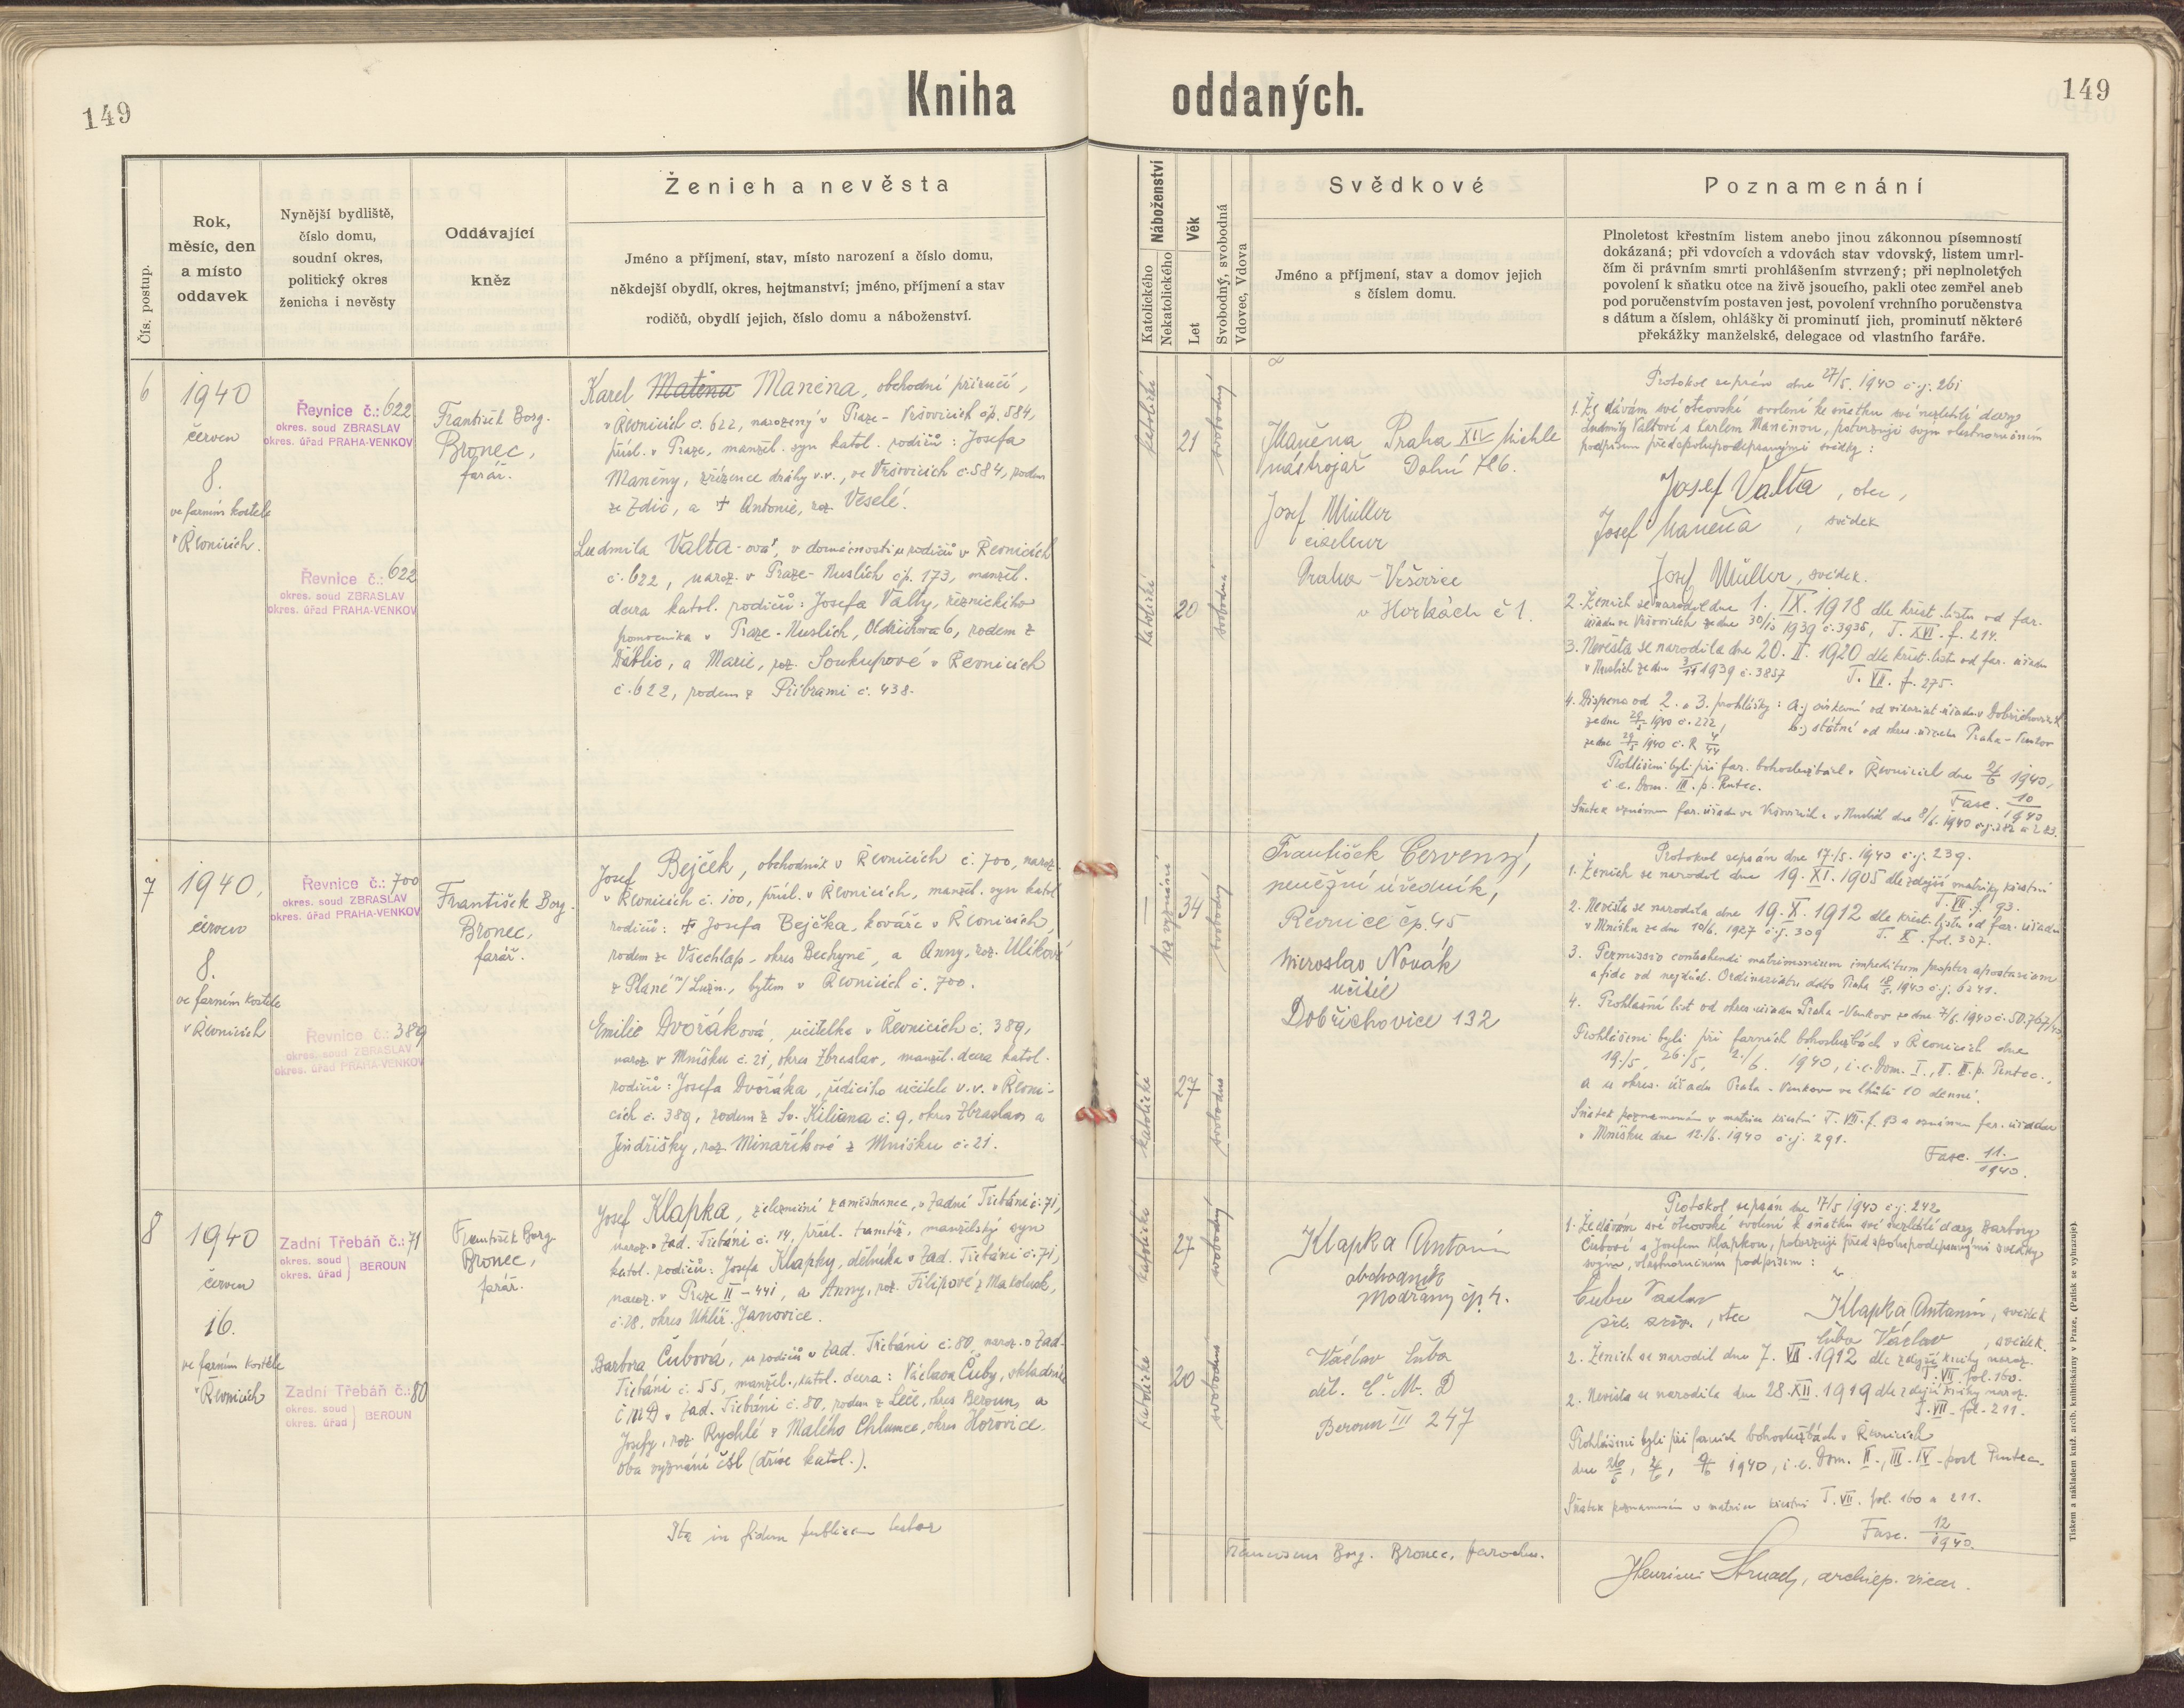 149
Kniha
oddaných.
149
Čís. postup.
Rok,
měsíc, den
a místo
oddavek
Nynější bydliště,
číslo domu,
soudní okres,
politický okres
ženicha i nevěsty
Oddávající
kněz
Ženich a nevěsta
Jméno a příjmení, stav, místo narození a číslo domu,
někdejší obydlí, okres, hejtmanství; jméno, příjmení a stav
rodičů, obydlí jejich, číslo domu a náboženství.
Náboženství
Katolického
Nekatolického
Věk
Let
Svobodný, svobodná
Vdovec, Vdova
Svědkové
Jméno a příjmení, stav a domov jejich
s číslem domu.
Poznamenání
Plnoletost křestním listem anebo jinou zákonnou písemností
dokázaná; při vdovcích a vdovách stav vdovský, listem umrl-
čím či právním smrti prohlášením stvrzený; při neplnoletých
povolení k sňatku otce na živě jsoucího, pakli otec zemřel aneb
pod poručenstvím postaven jest, povolení vrchního poručenstva
s dátum a číslem, ohlášky či prominutí jich, prominutí některé
překážky manželské, delegace od vlastního faráře.
6
1940
červen
8.
ve farním kostele
v Řevnicích.
Řevnice č.: 622
okres. soud ZBRASLAV
okres. úřad PRAHA-VENKOV
Řevnice č.: 622
okres. soud ZBRASLAV
okres. úřad PRAHA-VENKOV
František Borg.
Bronec,
farář.
Karel Matěna Maněna, obchodní příručí,
v Řevnicích č. 622, narozený v Praze - Vršovicích čp. 584,
přísl. v Praze, manžel. syn katol. rodičů: Josefa
Maněny, zřízence dráhy v.v., ve Vršovicích č. 584, rodem
ze Zdic, a + Antonie, roz. Veselé.
Ludmila Valta-ová, v domácnosti u rodičů v Řevnicích
č. 622, naroz. v Praze - Nuslích čp. 173, manžel.
dcera katol. rodičů: Josefa Valty, řeznického
pomocníka v Praze - Nuslích, Oldřichova 6, rodem z
Ďáblic, a Marie, roz. Soukupové v Řevnicích
č. 622, rodem z Příbrami č. 438.
katolické
21
svobodný
katolické
20
svobodná
JManěna Praha XIV Michle
nástrojař Dolní 426.
Josef Müller
ciseleur
Praha - Vršovice
v Horkách č 1.
Protokol sepsán dne 27/5. 1940 č.j. 261
1. Že dávám své otcovské svolení ke sňatku své nezletilé dcery
Ludmily Valtové s Karlem Maněnou, potvrzuji svým vlastnoručním
podpisem před spolupodepsanými svědky:
Josef Valta, otec,
Josef Maněna, svědek
Josef Müller, svědek.
2. Ženich se narodil dne 1. IX. 1918 dle křest. listu od far.
úřadu ve Vršovicích ze dne 1939 č. 3935, T. XVI. f. 214.
3. Nevěsta se narodila dne 20. II. 1920 dle křest. listu od far. úřadu
v Nuslích ze dne 1939 č. 3857 T. VII. f. 275.
4. Dispens od 2. a 3. prohlášky: a.) církevní od vikariát. úřadu v Dobřichovicích
ze dne 1940 č. 222, b.) státní od okres. úřadu Praha - Venkov
ze dne 29/5 1940 č. R
Prohlášeni byli při far. bohoslužbách v Řevnicích dne 2/6 1940,
i. e. Dom. III. p. Pentec.
Fasc. 10/1940
Sňatek oznámen far. úřadu ve Vršovicích a v Nuslích dne 8/6. 1940 č.j. 282 a 283.
7
1940,
červen
8.
ve farním kostele
v Řevnicích
Řevnice č.: 700
okres. soud ZBRASLAV
okres. úřad PRAHA-VENKOV
Řevnice č.: 389
okres. soud ZBRASLAV
okres. úřad PRAHA-VENKOV
František Borg.
Bronec,
farář.
Josef Bejček, obchodník v Řevnicích č. 700, naroz.
v Řevnicích č. 100, přísl. v Řevnicích, manžel. syn katol.
rodičů: + Josefa Bejčka, kováře v Řevnicích,
rodem ze Všechlap, okres Bechyně, a Anny, roz. Ulíkové
z Plané n/Lužn., bytem v Řevnicích č. 700.
Emilie Dvořáková, učitelka v Řevnicích č. 389,
naroz. v Mníšku č. 21, okres Zbraslav, manžel. dcera katol.
rodičů: Josefa Dvořáka, řídícího učitele v.v. v Řevni-
cích č. 389, rodem z Sv. Kiliana č. 9, okres Zbraslav a
Jindřišky, roz. Minaříkové z Mníšku č. 21.
bez vyznání
34
svobodný
katolické
27
svobodná
František Červený,
peněžní úředník,
Řevnice čp. 45
Miroslav Novák
učitel
Dobřichovice 132
Protokol sepsán dne 17./5. 1940 č.j. 239.
1. Ženich se narodil dne 19. XI. 1905 dle zdejší matriky křestní
T. VII. f. 93.
2. Nevěsta se narodila dne 19. X. 1912 dle křest. listu od far. úřadu
v Mníšku ze dne 10/6. 1927 č.j. 309 T. X. fol. 307.
3. Permissio contrahendi matrimonium impeditum propter apostasiam
a fide od nejdůst. Ordinariátu ddto Praha 18/5. 1940 č.j. 6241.
4. Prohlašní list od okres. úřadu Praha - Venkov ze dne 7/6. 1940 č. 50.767/40
Prohlášeni byli při farních bohoslužbách v Řevnicích dne
19./5, 26./5, 2./6. 1940, i. e. Dom. I., II. III. p. Pentec.,
a u okres. úřadu Praha - Venkov ve lhůtě 10 denní.
Sňatek poznamenán v matrice křestní T. VII. f. 93 a oznámen far. úřadu
v Mníšku dne 12./6. 1940 č.j. 291.
Fasc. 11./1940.
8
1940
červen
16.
ve farním kostele
v Řevnicích
Zadní Třebáň č.: 71
okres. soud
okres. úřad } BEROUN
Zadní Třebáň č.: 80
okres. soud
okres. úřad } BEROUN
František Borg.
Bronec,
farář.
Josef Klapka, železniční zaměstnanec, v Zadní Třebáni č. 71,
naroz. v Zad. Třebáni č. 14, přísl. tamtéž, manželský syn
katol. rodičů: Josefa Klapky, dělníka v Zad. Třebáni č. 71,
naroz. v Praze II - 441, a Anny, roz. Filipové z Makolusk,
č. 28, okres Uhlíř. Janovice.
Barbora Čubová, u rodičů v Zad. Třebáni č. 80, naroz. v Zad.
Třebáni č. 55, manžel., katol. dcera: Václava Čuby, skladníka
ČMD v Zad. Třebáni č. 80, rodem z Leče, okres Beroun, a
Josefy, roz. Rychlé z Malého Chlumce, okres Hořovice.
Oba vyznání čsl (dříve katol.).
katolické
27
svobodný
katolické
20
svobodná
Klapka Antonín
obchodník
Modřany čp 4.
Václav Čuba
děl. Č. M. D
Beroun III 247
Protokol sepsán dne 17/5 1940 č.j. 242
1. Že dávám své otcovské svolení k sňatku své nezletilé dcery Barbory
Čubové s Josefem Klapkou, potvrzuji před spolupodepsanými svědky
svým vlastnoručním podpisem:
Čuba Václav
, otec
Klapka Antonín, svědek
Čuba Václav, svědek.
2. Ženich se narodil dne 7. VII. 1912 dle zdejší knihy naroz.
T. VII. fol. 160.
2. Nevěsta se narodila dne 28. XII. 1919 dle zdejší knihy naroz.
T. VII. fol. 211.
Prohlášeni byli při farních bohoslužbách v Řevnicích
dne 26/5, 2/6, 9/6 1940, i. e. Dom. II., III. IV. post Pentec.
Sňatek poznamenán v matrice křestní T. VII. fol. 160 a 211.
Fasc. 12/1940.
Ita in fidem publicam testor
Franciscus Borg. Bronec, parochus.
Henricus Strnad, archiep. vicar.
Tiskem a nákladem kníž. arcib. knihtiskárny v Praze. (Patisk se vyhrazuje).